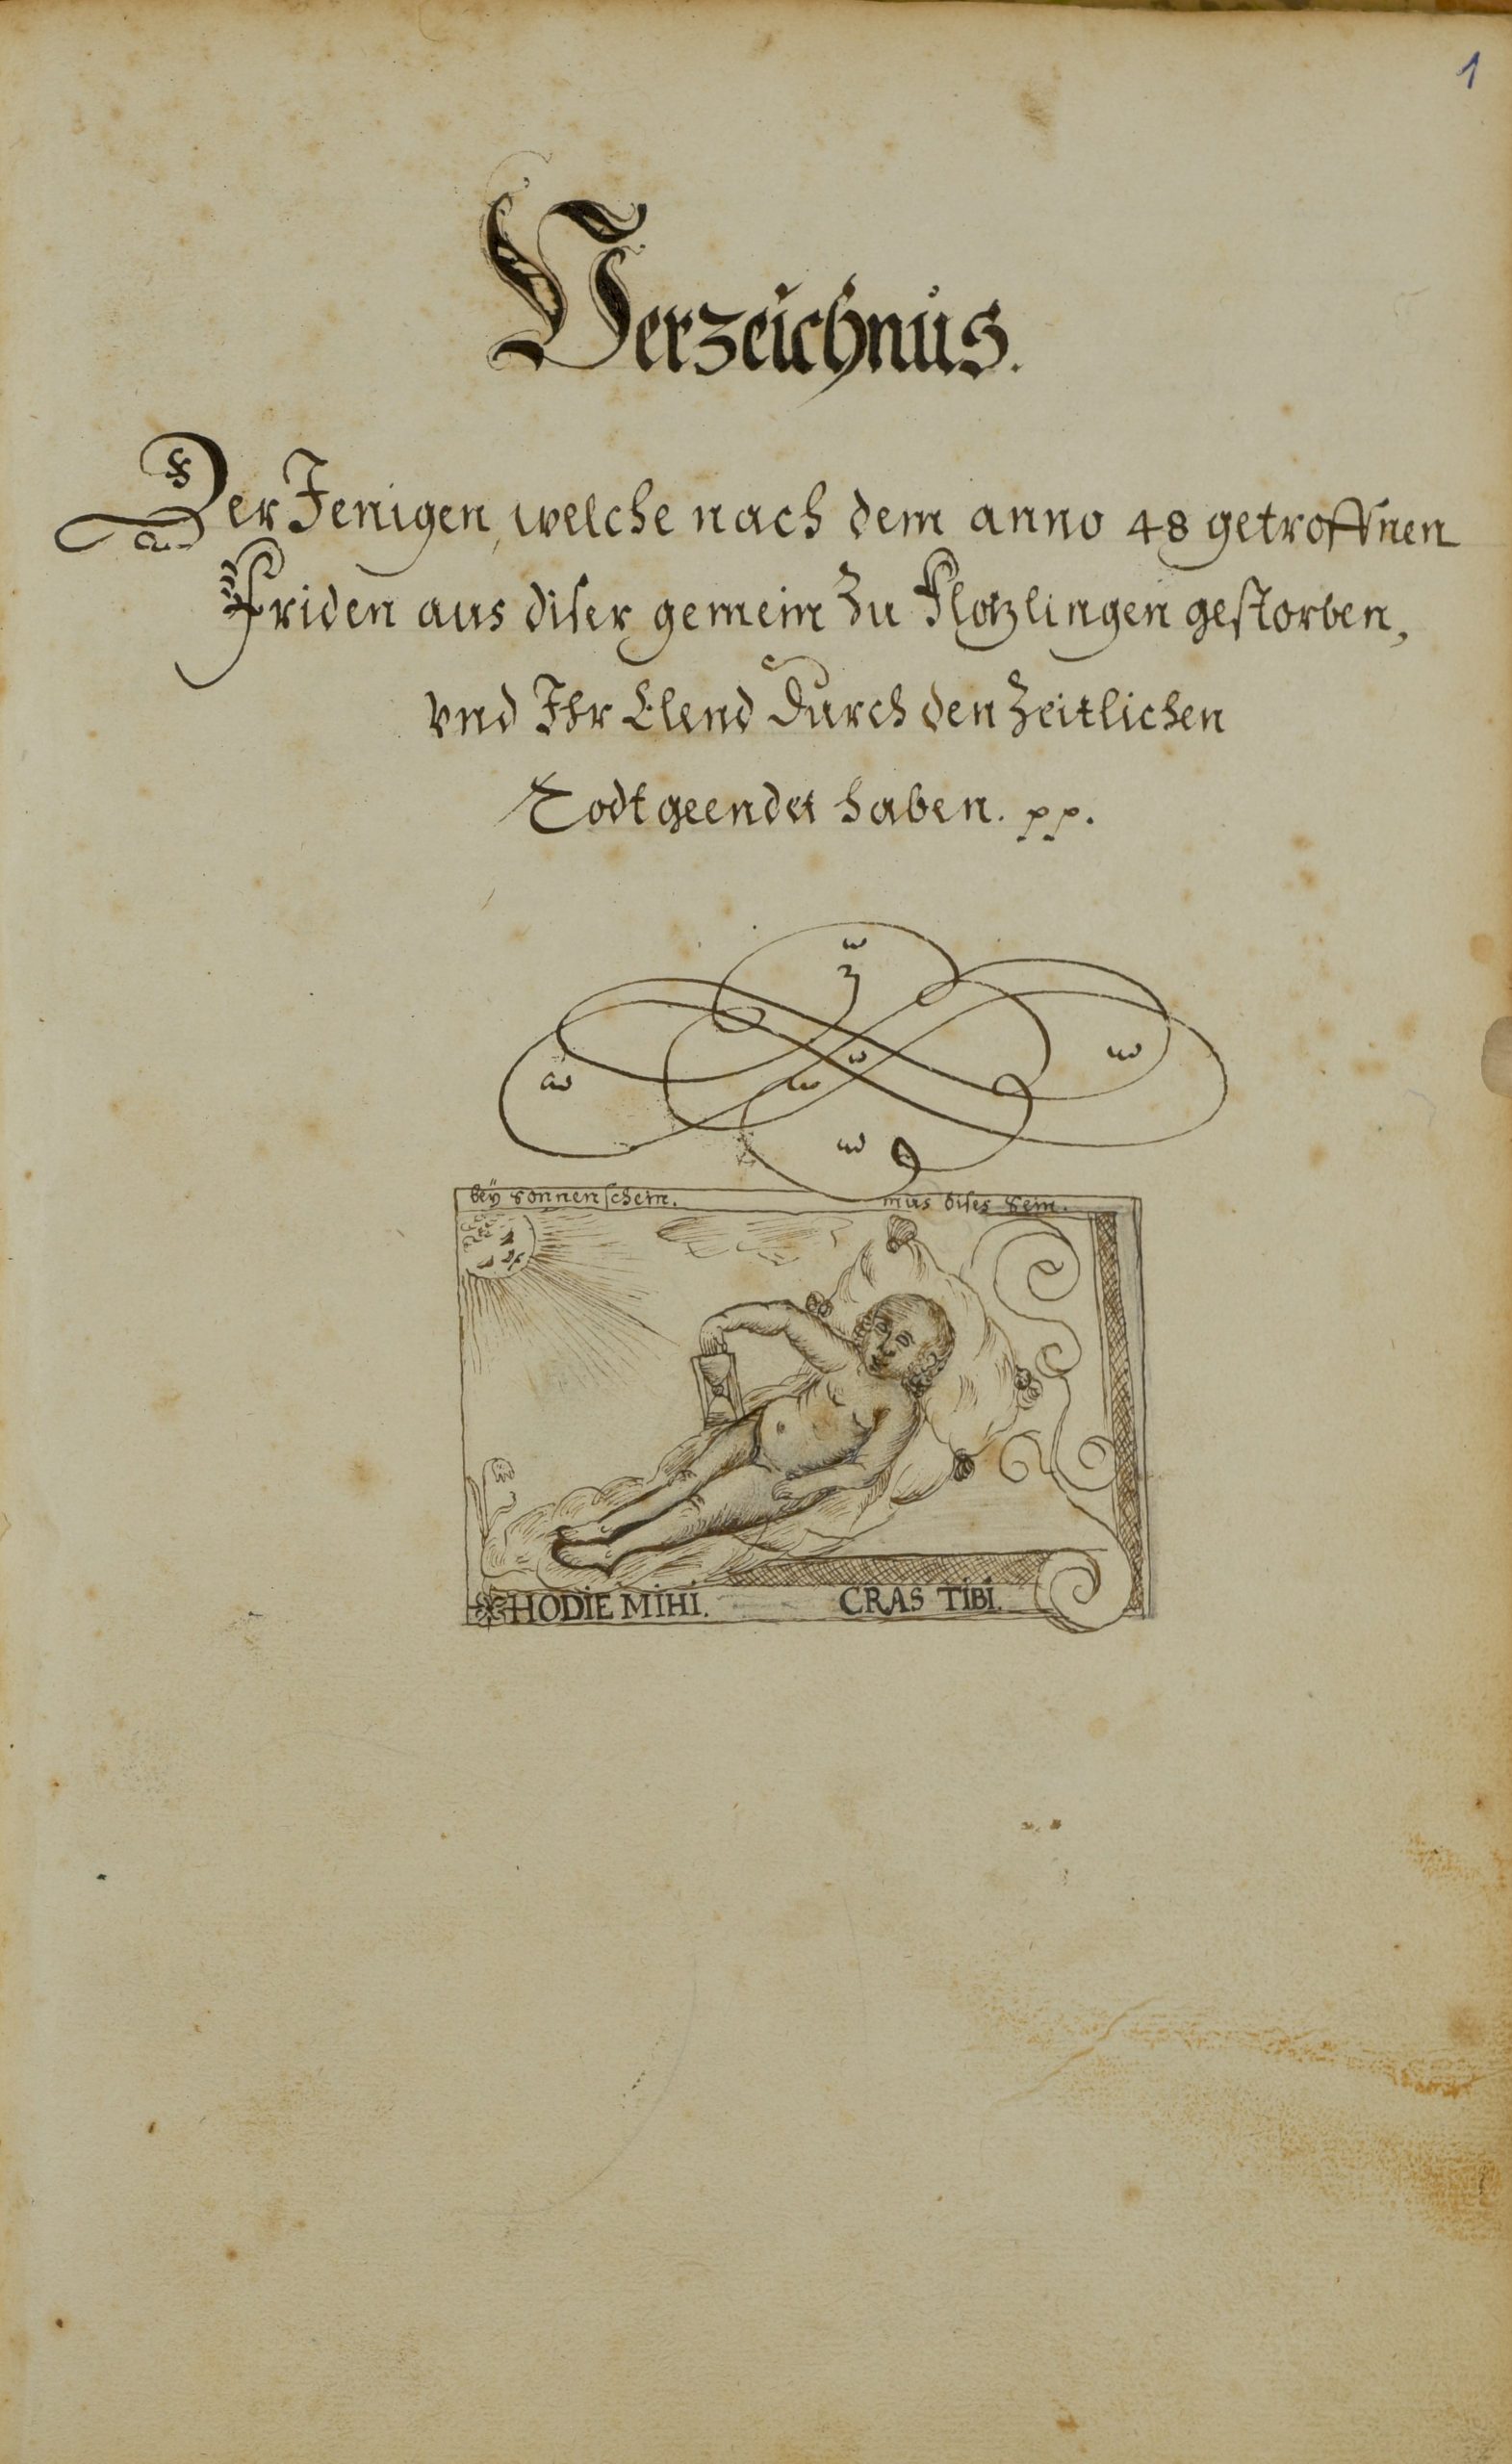 1
Verzeichnus.
Der Jenigen, welche nach dem anno 48 getroffnen
Friden aus diser gemein zu Flozlingen gestorben,
vnd Ihr Elend durch den zeitlichen
Todt geendet haben. pp.
beÿ sonnenschein. mus dises sein.
HODIE MIHI. CRAS TIBI.